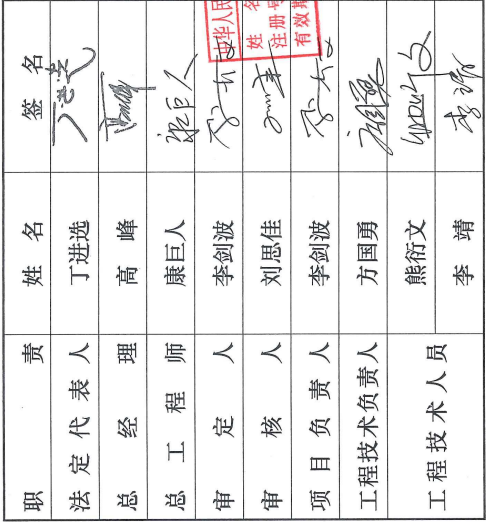 职 责 姓 名 签 名
法定代表人 丁进选 丁进选
总 经 理 高 峰 高峰
总 工 程 师 康巨人 康巨人
审 定 人 李剑波
审 核 人 刘思佳
项目负责人 李剑波
工程技术负责人 方国勇
工程技术人员 熊衍文
李 靖
中华人民
姓 名
注册号
有效期